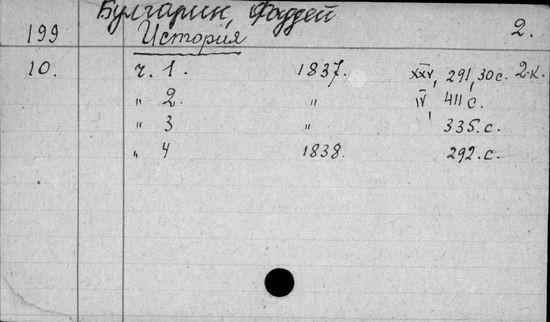 Булгарин, Фаддей
199 История 2.
10. ч. 1. 1837. XXV, 291, 30 с. 2 к.
„ 2. „ IV, 411 с.
„ 3 „ 335. с.
„ 4 1838. 292. с.